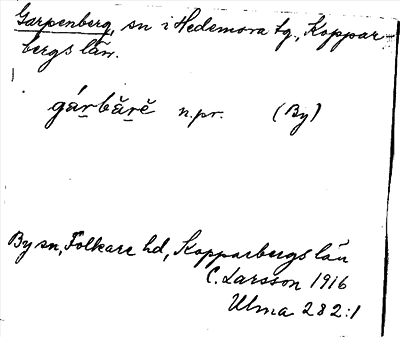 Garpenberg, sn i Hedemora tg, Koppar-
bergs län.
gárbărĕ n.pr. (By)
By sn, Folkare hd, Kopparbergs län
C. Larsson 1916
Ulma 282:1